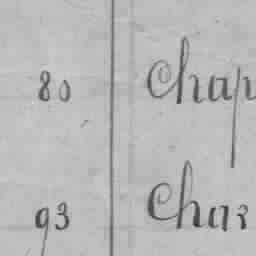 80 Chap
93 Chas